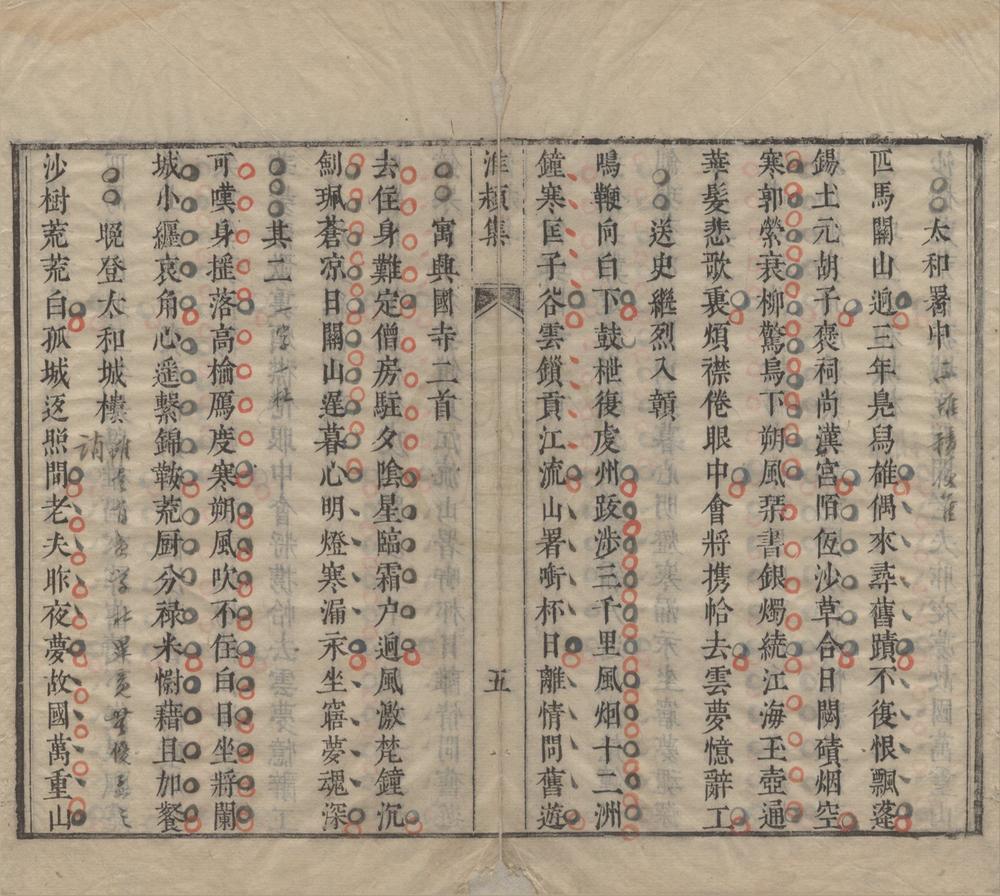 太和署中
匹馬關山迥三年鳧舄雄偶來尋舊蹟不復恨飄蓬
錫土元胡子褒祠尚漢宮陌恆沙草合日閼磧烟空
寒郭縈衰柳驚烏下朔風琴書銀燭統江海玉壺通
華髮悲歌裏煩襟倦眼中會將携帢去雲夢憶辭工
送史繼烈入贛
鳴鞭向白下鼓枻復虔州跋涉三千里風烟十二洲
鐘寒匡子谷雲鎖貢江流山署啣杯日離情問舊遊
淮潁集
五
寓興國寺二首
去住身難定僧房駐夕陰星臨霜户迥風激梵鐘沉
劍珮蒼凉日關山遲暮心明燈寒漏永坐寤夢魂深
其二
可嘆身揺落高榆鴈度寒朔風吹不住白日坐將闌
城小纏哀角心遥繫錦鞍荒厨分禄米慰藉且加餐
晚登太和城樓
沙樹荒荒白孤城返照間老夫昨夜夢故國萬重山